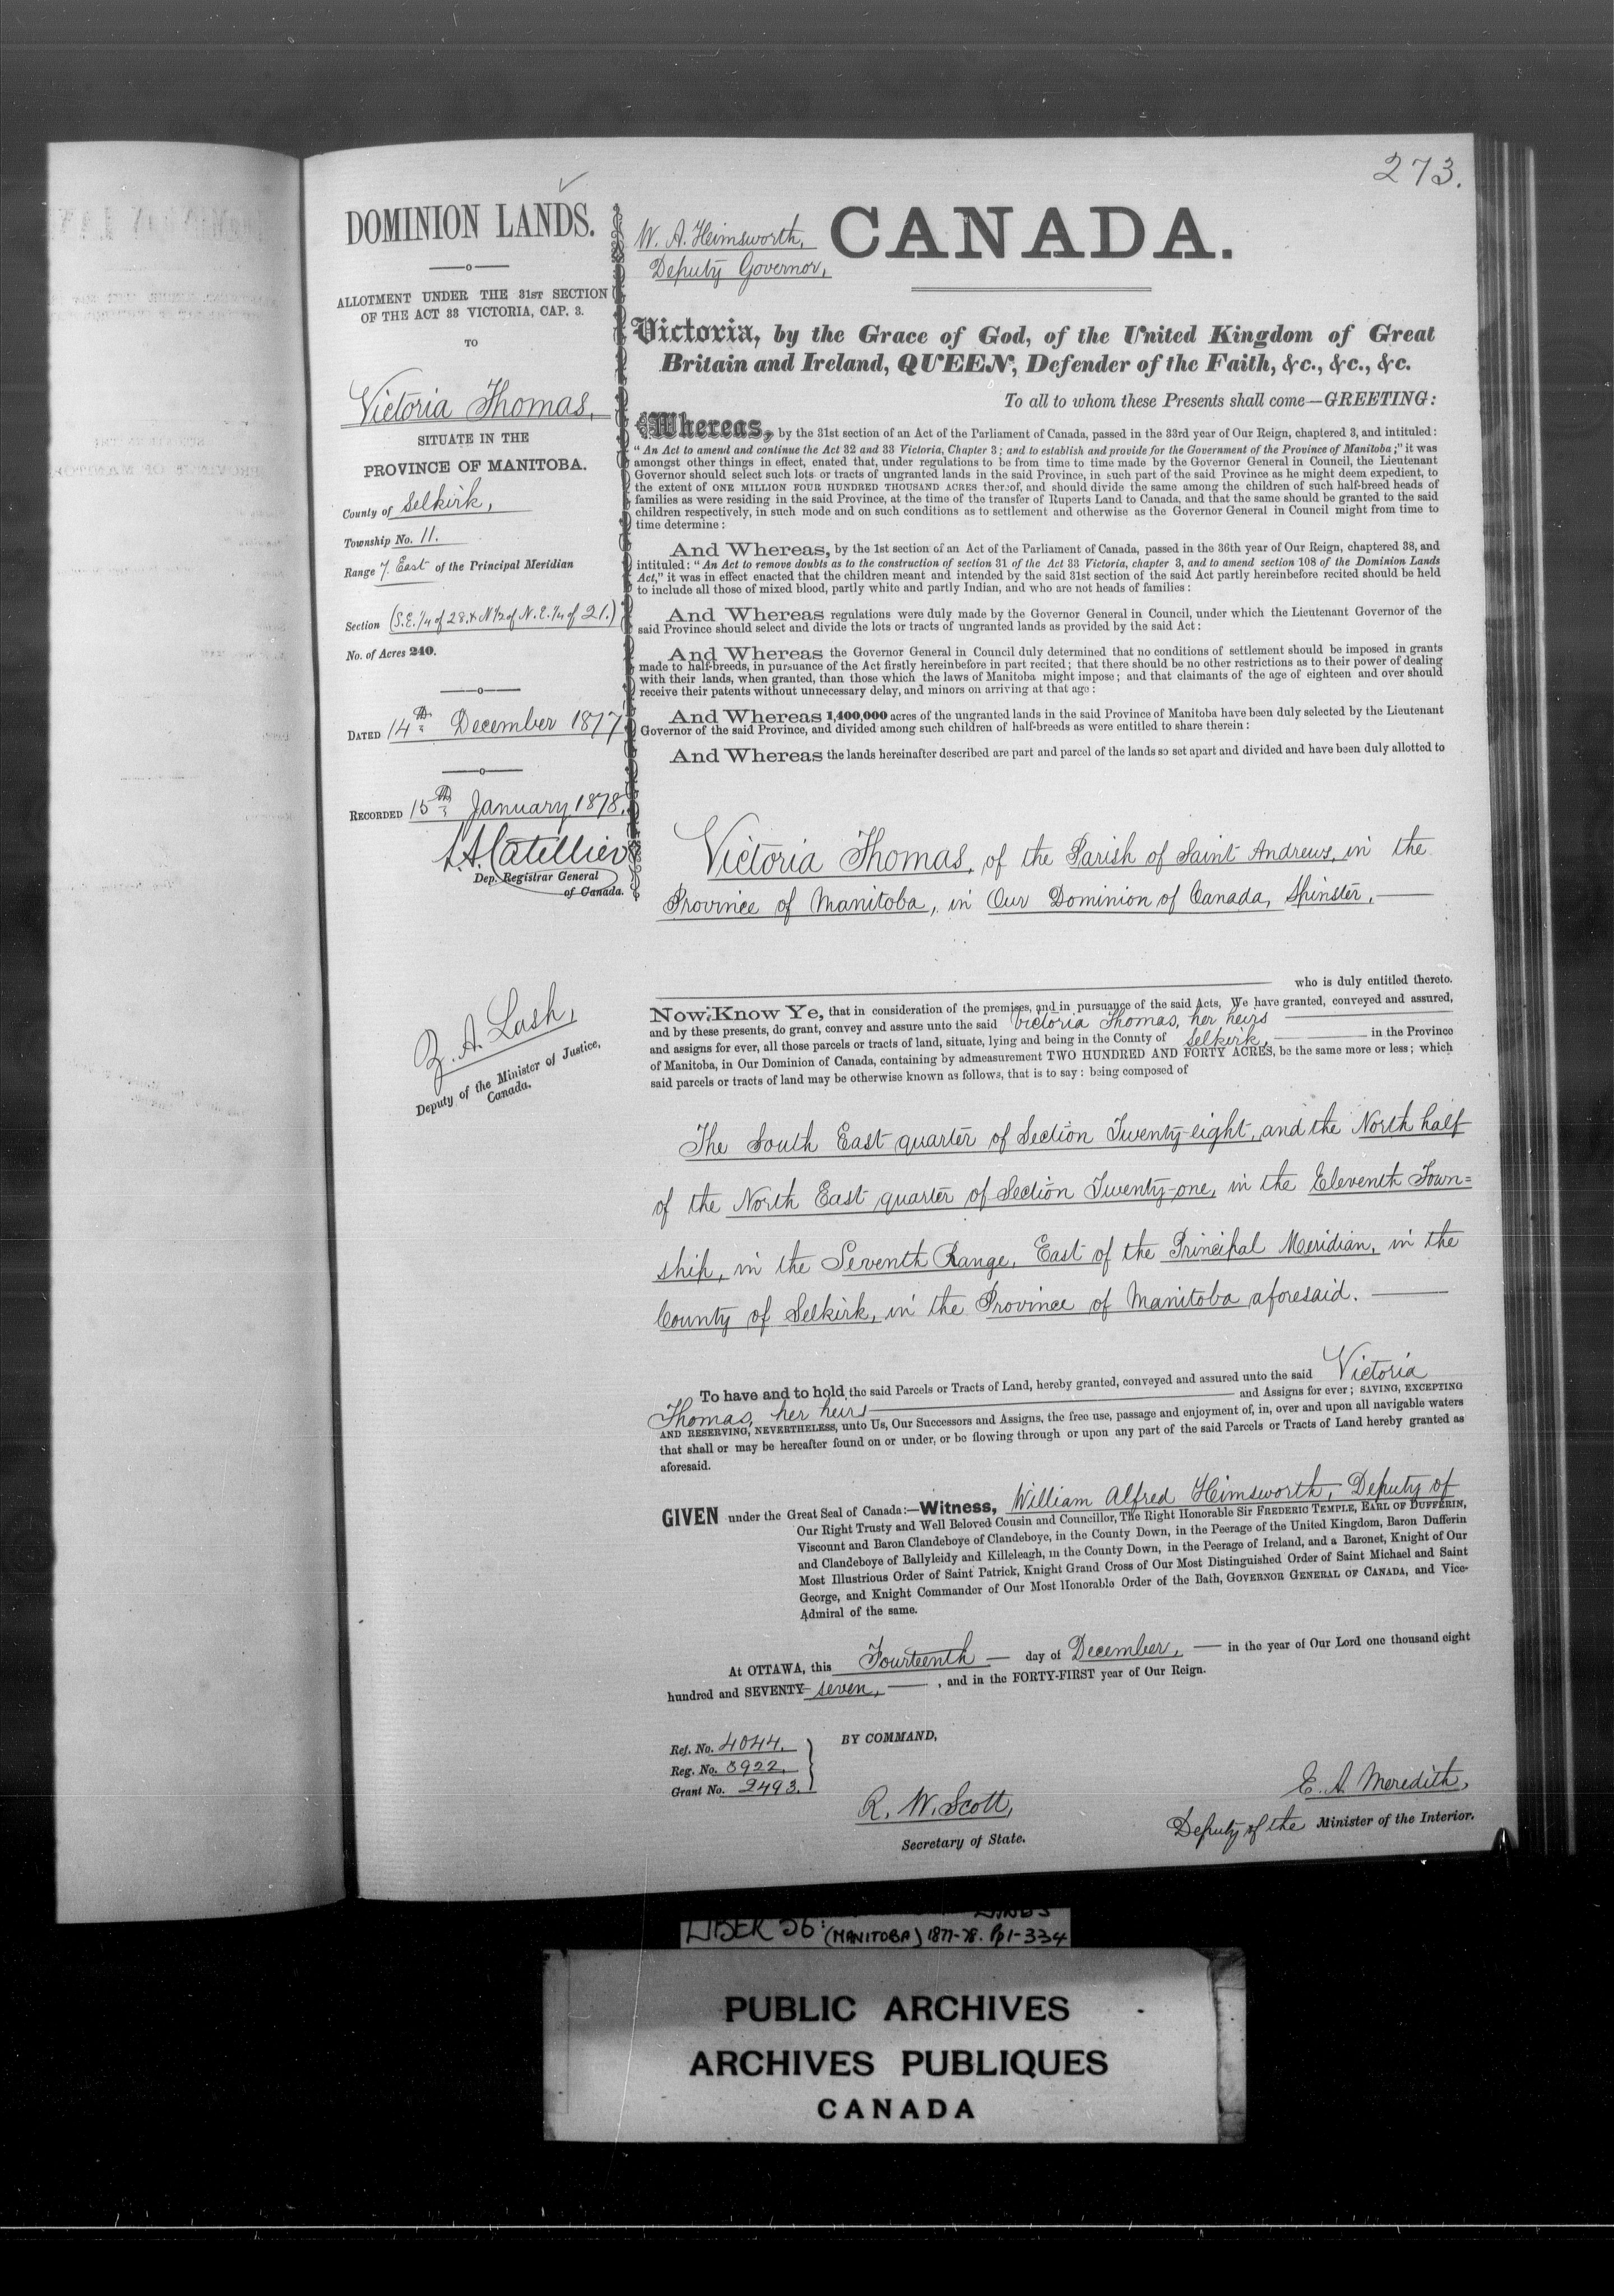 273.
DOMINION LANDS.
ALLOTMENT UNDER THE 31ST SECTION
OF THE ACT 33 VICTORIA, CAP. 3.
TO
Victoria Thomas,
SITUATE IN THE
PROVINCE OF MANITOBA.
County of Selkirk,
Township No. 11.
Range 7. East of the Principal Meridian
Section (S.E. 1/4 of 28, & N 1/2 of N. E. 1/4 of 21.)
No. of Acres 240.
DATED 14th December 1877
RECORDED 15th January 1878.
L.A. Catellier
Dep. Registrar General
of Canada.
Z. A. Lash,
Deputy of the Minister of Justice,
Canada.
W. A. Himsworth,
Deputy Governor,
CANADA.
Victoria, by the Grace of God, of the United Kingdom of Great
Britain and Ireland, QUEEN, Defender of the Faith, &c., &c., &c.
To all to whom these Presents shall come—GREETING:
Whereas, by the 31st section of an Act of the Parliament of Canada, passed in the 33rd year of Our Reign, chaptered 3, and intituled:
"An Act to amend and continue the Act 32 and 33 Victoria, Chapter 3; and to establish and provide for the Government of the Province of Manitoba;" it was
amongst other things in effect, enated that, under regulations to be from time to time made by the Governor General in Council, the Lieutenant
Governor should select such lots or tracts of ungranted lands in the said Province, in such part of the said Province as he might deem expedient, to
the extent of ONE MILLION FOUR HUNDRED THOUSAND ACRES thereof, and should divide the same among the children of such half-breed heads of
families as were residing in the said Province, at the time of the transfer of Ruperts Land to Canada, and that the same should be granted to the said
children respectively, in such mode and on such conditions as to settlement and otherwise as the Governor General in Council might from time to
time determine:
And Whereas, by the 1st section of an Act of the Parliament of Canada, passed in the 36th year of Our Reign, chaptered 38, and
intituled: "An Act to remove doubts as to the construction of section 31 of the Act 33 Victoria, chapter 3, and to amend section 108 of the Dominion Lands
Act," it was in effect enacted that the children meant and intended by the said 31st section of the said Act partly hereinbefore recited should be held
to include all those of mixed blood, partly white and partly Indian, and who are not heads of families:
And Whereas regulations were duly made by the Governor General in Council, under which the Lieutenant Governor of the
said Province should select and divide the lots or tracts of ungranted lands as provided by the said Act:
And Whereas the Governor General in Council duly determined that no conditions of settlement should be imposed in grants
made to half-breeds, in pursuance of the Act firstly hereinbefore in part recited; that there should be no other restrictions as to their power of dealing
with their lands, when granted, than those which the laws of Manitoba might impose; and that claimants of the age of eighteen and over should
receive their patents without unnecessary delay, and minors on arriving at that age:
And Whereas 1,400,000 acres of the ungranted lands in the said Province of Manitoba have been duly selected by the Lieutenant
Governor of the said Province, and divided among such children of half-breeds as were entitled to share therein:
And Whereas the lands hereinafter described are part and parcel of the lands so set apart and divided and have been duly allotted to
Victoria Thomas, of the Parish of Saint Andrews, in the
Province of Manitoba, in Our Dominion of Canada, Spinster,
who is duly entitled thereto.
Now Know Ye, that in consideration of the premises, and in pursuance of the said Acts, We have granted, conveyed and assured,
and by these presents, do grant, convey and assure unto the said Victoria Thomas, her heirs
and assigns for ever, all those parcels or tracts of land, situate, lying and being in the County of Selkirk, in the Province
of Manitoba, in Our Dominion of Canada, containing by admeasurement TWO HUNDRED AND FORTY ACRES, be the same more or less; which
said parcels or tracts of land may be otherwise known as follows, that is to say: being composed of
The South East quarter of Section Twenty-eight, and the North half
of the North East quarter of Section Twenty-one, in the Eleventh Town=
ship, in the Seventh Range, East of the Principal Meridian, in the
County of Selkirk, in the Province of Manitoba aforesaid.
To have and to hold the said Parcels or Tracts of Land, hereby granted, conveyed and assured unto the said Victoria
Thomas, her heirs and Assigns for ever; SAVING, EXCEPTING
AND RESERVING, NEVERTHELESS, unto Us, Our Successors and Assigns, the free use, passage and enjoyment of, in, over and upon all navigable waters
that shall or may be hereafter found on or under, or be flowing through or upon any part of the said Parcels or Tracts of Land hereby granted as
aforesaid.
GIVEN under the Great Seal of Canada:—Witness, William Alfred Himsworth, Deputy of
Our Right Trusty and Well Beloved Cousin and Councillor, The Right Honorable Sir FREDERIC TEMPLE, EARL OF DUFFERIN,
Viscount and Baron Clandeboye of Clandeboye, in the County Down, in the Peerage of the United Kingdom, Baron Dufferin
and Clandeboye of Ballyleidy and Killeleagh, in the County Down, in the Peerage of Ireland, and a Baronet, Knight of Our
Most Illustrious Order of Saint Patrick, Knight Grand Cross of Our Most Distinguished Order of Saint Michael and Saint
George, and Knight Commander of Our Most Honorable Order of the Bath, GOVERNOR GENERAL OF CANADA, and Vice-
Admiral of the same.
At OTTAWA, this Fourteenth day of December, in the year of Our Lord one thousand eight
hundred and SEVENTY-seven, , and in the FORTY-FIRST year of Our Reign.
Ref. No. 4044.
Reg. No. 3922.
Grant No. 2493.
BY COMMAND,
R. W. Scott,
Secretary of State.
E. A. Meredith,
Deputy of the Minister of the Interior.
LIBER 56: (MANITOBA) 1877-78. Pp1-334
PUBLIC ARCHIVES
ARCHIVES PUBLIQUES
CANADA